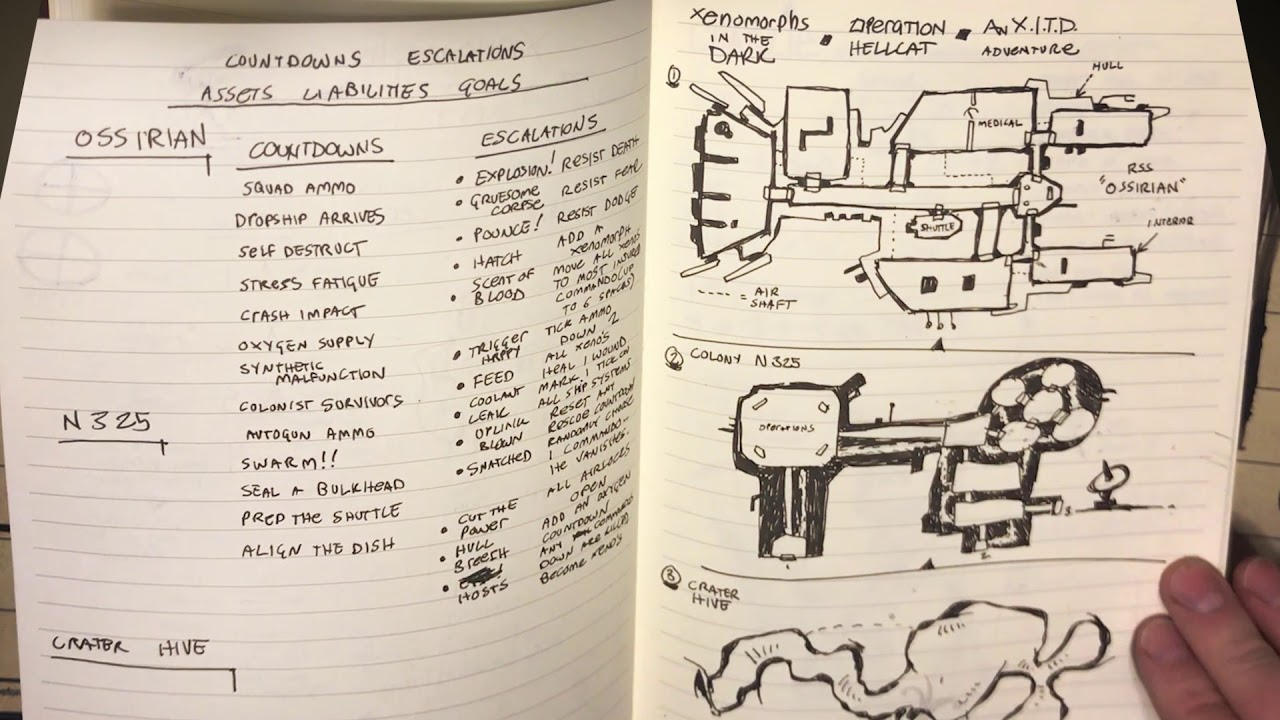 COUNTDOWNS ESCALATIONS
ASSETS LIABILITIES GOALS
OSSIRIAN
N325
CRATER HIVE
COUNTDOWNS
SQUAD AMMO
DROPSHIP ARRIVES
SELF DESTRUCT
STRESS FATIGUE
CRASH IMPACT
OXYGEN SUPPLY
SYNTHETIC
MALFUNCTION
COLONIST SURVIVORS
AUTOGUN AMMO
SWARM!!
SEAL A BULKHEAD
PREP THE SHUTTLE
ALIGN THE DISH
ESCALATIONS
• EXPLOSION! RESIST DEATH
• GRUESOME CORPSE RESIST FEAR
• POUNCE! RESIST DODGE
• HATCH ADD A XENOMORPH
• SCENT OF BLOOD MOVE ALL XENOS
TO MOST INJURED
COMMANDO (UP
TO 6 SPACES)
• TRIGGER HAPPY TICK AMMO
DOWN 2
• FEED ALL XENO'S
HEAL 1 WOUND
• COOLANT LEAK MARK 1 TICK ON
ALL SHIP SYSTEMS
• UPLINK BLOWN RESET ANY
RESCUE COUNTDOWN
• SNATCHED RANDOMLY CHOOSE
1 COMMANDO...
HE VANISHES.
• CUT THE POWER ALL AIRLOCKS
OPEN
• HULL BREECH ADD AN OXYGEN
COUNTDOWN
• HOSTS ANY COMMANDOS
DOWN ARE KILLED
BECOME XENO'S
XENOMORPHS
IN THE
DARK
• OPERATION
HELLCAT
• AN X.I.T.D.
ADVENTURE
1
HULL
MEDICAL
RSS
"OSSIRIAN"
SHUTTLE
INTERIOR
---- = AIR
SHAFT
2 COLONY N325
OPERATIONS
1
2
3
3 CRATER
HIVE